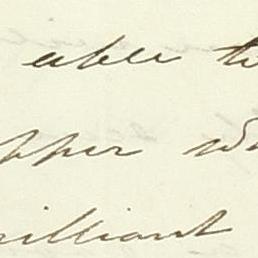 able to
pper
rilliant